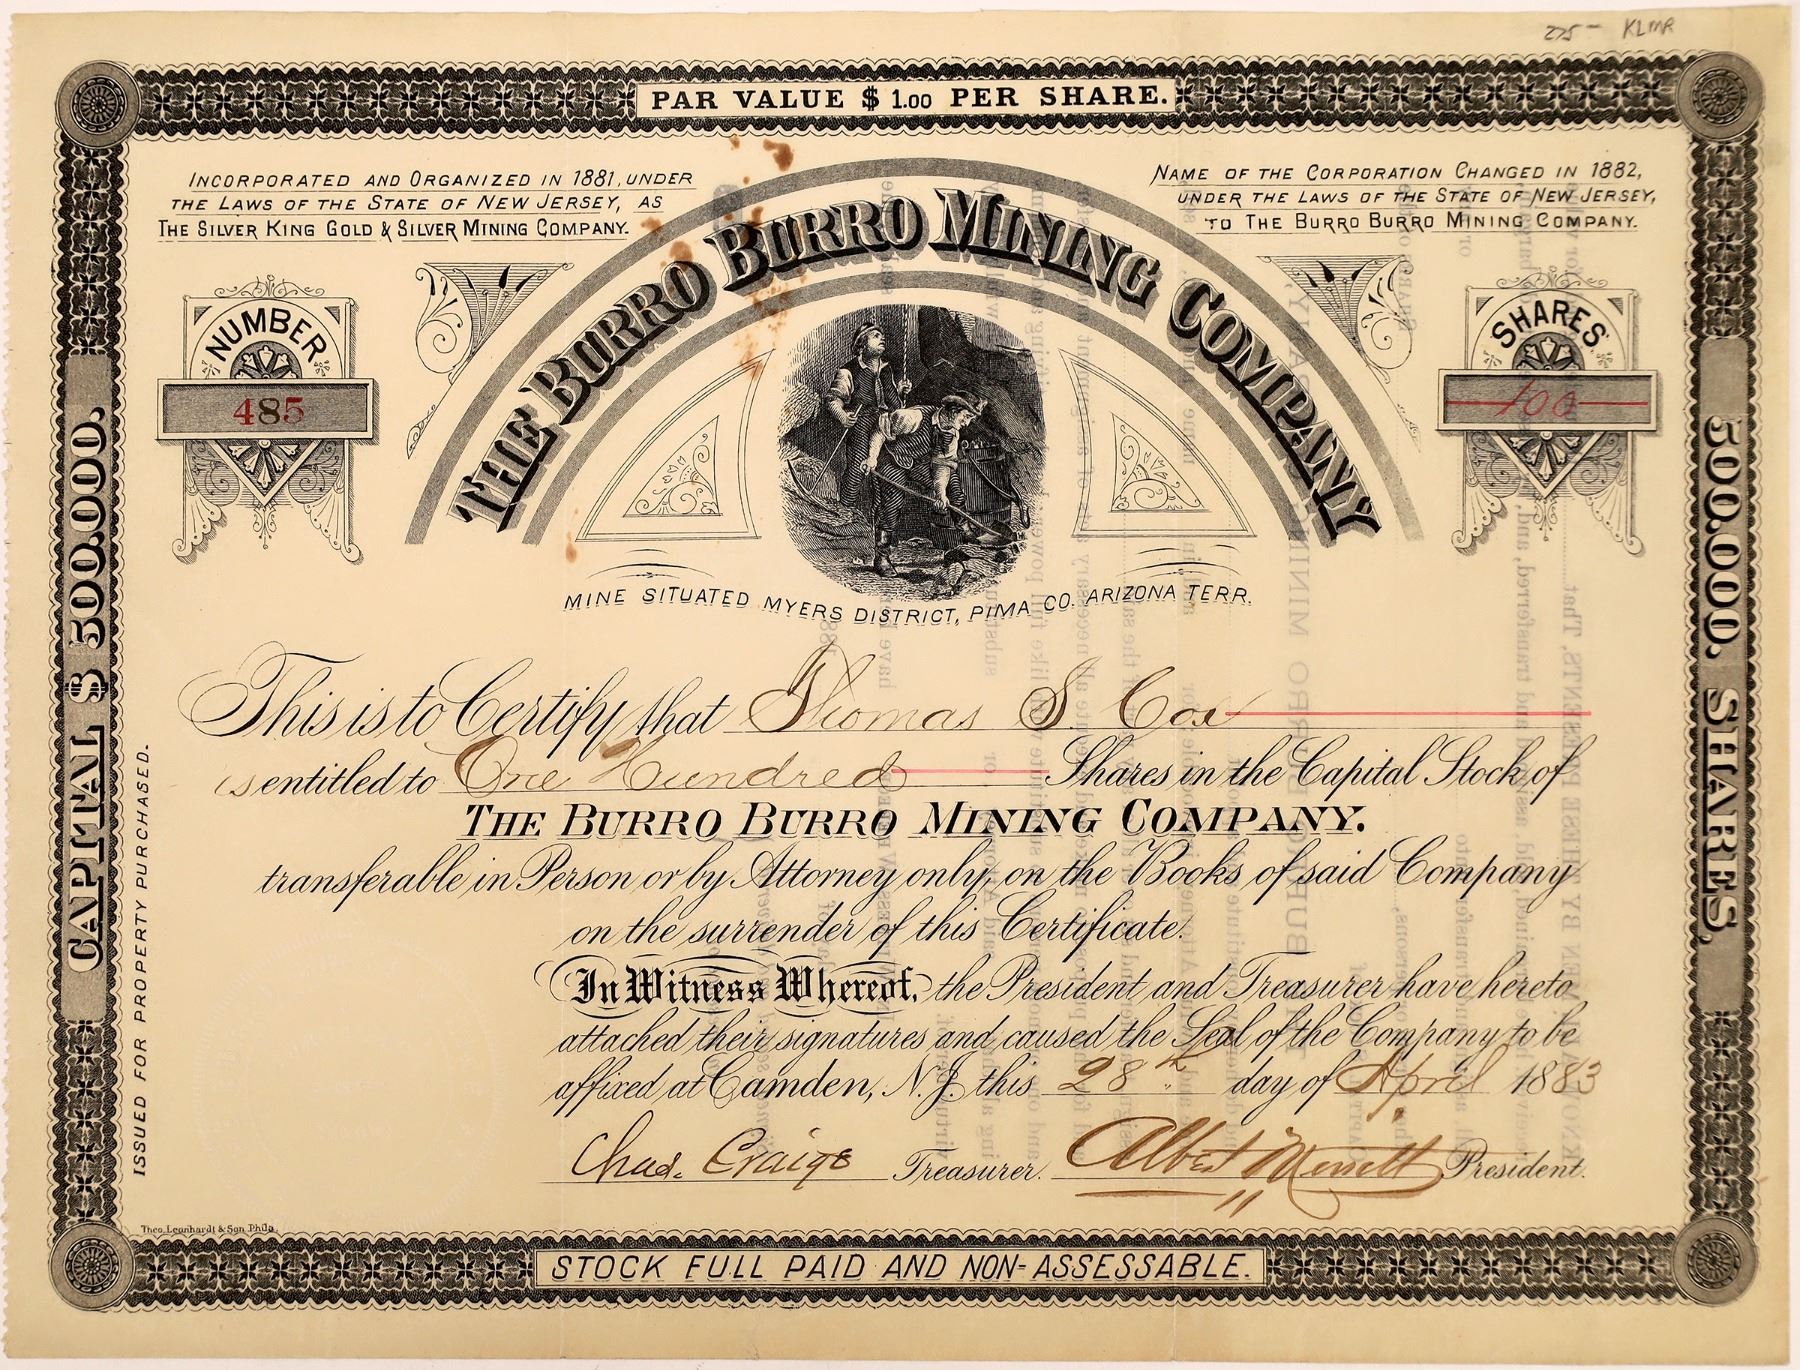 275- KLMR
PAR VALUE $ 1.00 PER SHARE.
INCORPORATED AND ORGANIZED IN 1881, UNDER
THE LAWS OF THE STATE OF NEW JERSEY, AS
THE SILVER KING GOLD & SILVER MINING COMPANY.
NAME OF THE CORPORATION CHANGED IN 1882,
UNDER THE LAWS OF THE STATE OF NEW JERSEY,
TO THE BURRO BURRO MINING COMPANY.
THE BURRO BURRO MINING COMPANY
NUMBER
485
SHARES
100
MINE SITUATED MYERS DISTRICT, PIMA CO. ARIZONA TERR.
CAPITAL $ 500.000.
500.000. SHARES.
ISSUED FOR PROPERTY PURCHASED.
This is to Certify that Thomas S. Cox
is entitled to One Hundred Shares in the Capital Stock of
THE BURRO BURRO MINING COMPANY.
transferable in Person or by Attorney only, on the Books of said Company
on the surrender of this Certificate.
In Witness Whereof, the President and Treasurer have hereto
attached their signatures and caused the Seal of the Company to be
affixed at Camden, N.J. this 28th day of April 1883
Chas. Craige Treasurer. Albert Merritt President.
Theo. Leonhardt & Son Phila.
STOCK FULL PAID AND NON-ASSESSABLE.